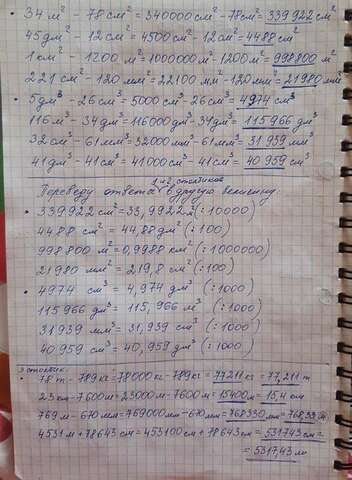 34 м² - 78 см² = 340000 см² - 78 см² = 339 922 см²
45 дм² - 12 см² = 4500 см² - 12 см² = 4488 см²
1 км² - 1200 м² = 1000000 м² - 1200 м² = 998800 м²
221 см² - 120 мм² = 22100 мм² - 120 мм² = 21980 мм²
• 5 дм³ - 26 см³ = 5000 см³ - 26 см³ = 4974 см³
116 м³ - 34 дм³ = 116000 дм³ - 34 дм³ = 115 966 дм³
32 см³ - 61 мм³ = 32000 мм³ - 61 мм³ = 31 939 мм³
41 дм³ - 41 см³ = 41000 см³ - 41 см³ = 40 959 см³
1 и 2 столбиков
Переведу ответы в другую величину
• 339922 см² = 33,9922 м² (:10000)
4488 см² = 44,88 дм² (:100)
998 800 м² = 0,9988 км² (:1000000)
21980 мм² = 219,8 см² (:100)
• 4974 см³ = 4,974 дм³ (:1000)
115 966 дм³ = 115,966 м³ (:1000)
31939 мм³ = 31,939 см³ (:1000)
40 959 см³ = 40,959 дм³ (:1000)
3 столбик
• 78 т - 789 кг = 78000 кг - 789 кг = 77211 кг = 77,211 т
23 км - 7600 м = 23000 м - 7600 м = 15400 м = 15,4 км
769 м - 670 мм = 769000 мм - 670 мм = 768330 мм = 768,33 м
4531 м + 78643 см = 453100 см + 78643 см = 531743 см =
= 5317,43 м